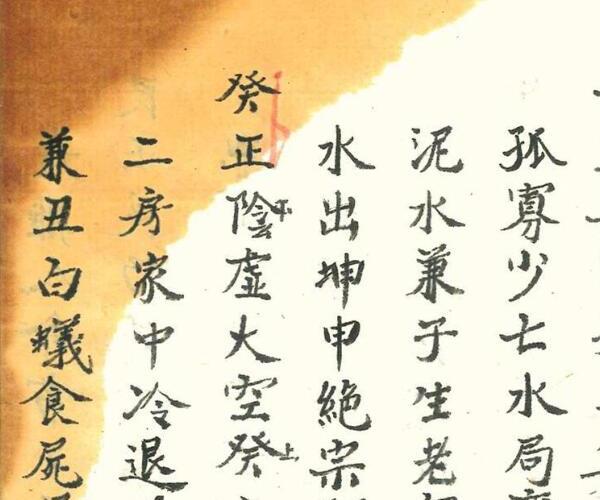 孤寡少亡水局
泥水兼子生老
水出坤申絕宗
癸正陰虛大空癸上
二房家中冷退
兼丑白蟻食屍